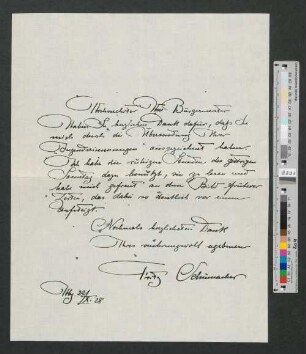 Hochverehrter Herr Bürgermeister
Haben Sie herzlichen Dank dafür, daß Sie
mich durch die Übersendung Ihrer
Jugenderinnerungen ausgezeichnet haben.
Ich habe die ruhigen Stunden des gestrigen
Sonntag dazu benutzt, sie zu lesen und
habe mich gefreut an dem Bilde früherer
Zeiten, das dabei so deutlich vor einem
aufsteigt.
Nochmals herzlichsten Dank
Ihres verehrungsvoll ergebenen
Fritz Schumacher
Hbg
IX. 28